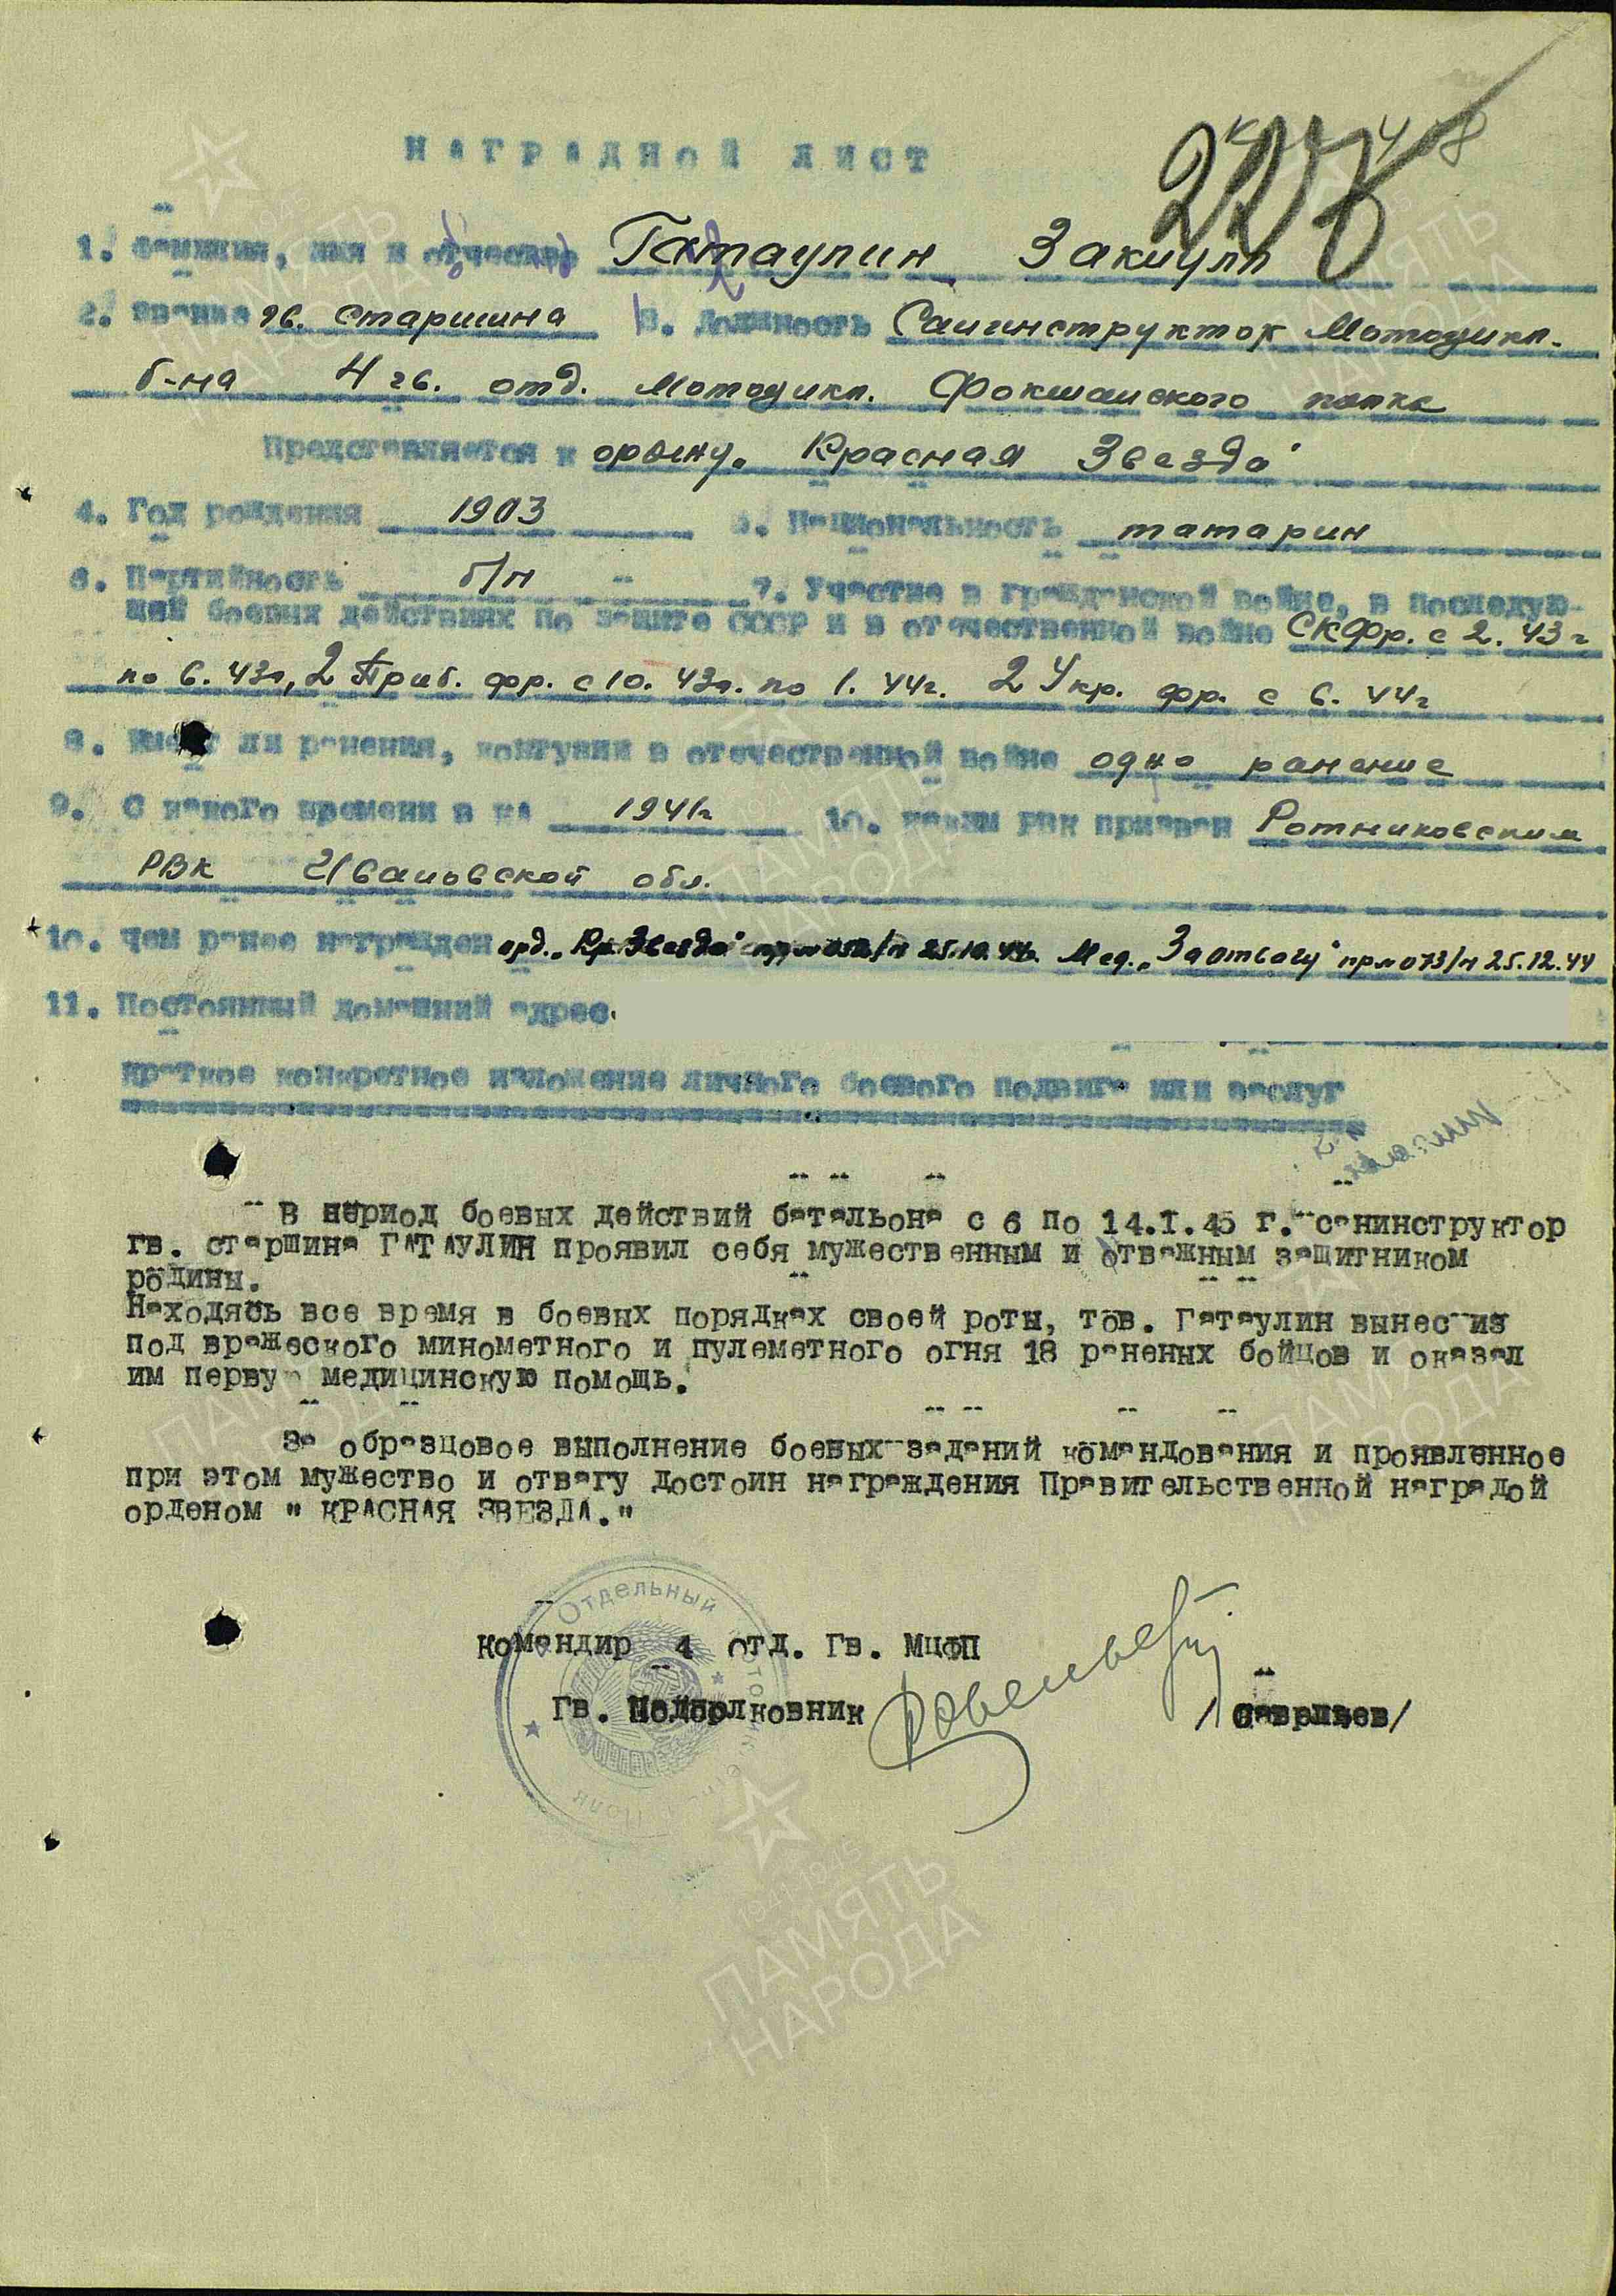 НАГРАДНОЙ ЛИСТ
1. Фамилия, имя и отчество Гатаулин Закиулл
2. Звание гв. старшина 3. Должность Санинструктор Мотоцикл.
б-на 4 гв. отд. Мотоцикл. Фокшанского полка
Представляется к ордену „Красная Звезда"
4. Год рождения 1903 5. Национальность татарин
6. Партийность б/п 7. Участие в гражданской войне, в последую-
щей боевых действиях по защите СССР и в отечественной войне СКФр. с 2. 43 г
по 6. 43г, 2 Приб. фр. с 10. 43г. по 1. 44г. 2 Укр. фр. с 6. 44г
8. Имеет ли ранения, контузии в отечественной войне одно ранение
9. С какого времени в КА 1941г 10. Каким РВК призван Ротниковским
РВК Ивановской обл.
10. Чем ранее награжден орд. „Кр. Звезда" 25.10.44г. Мед. „За отвагу" пр № 073/н 25.12.44
11. Постоянный домашний адрес.
Краткое конкретное изложение личного боевого подвига или заслуг
В период боевых действий батальона с 6 по 14.I.45 г. санинструктор
гв. старшина ГАТАУЛИН проявил себя мужественным и отважным защитником
родины.
Находясь все время в боевых порядках своей роты, тов. Гатаулин вынес из
под вражеского минометного и пулеметного огня 18 раненых бойцов и оказал
им первую медицинскую помощь.
За образцовое выполнение боевых заданий командования и проявленное
при этом мужество и отвагу достоин награждения Правительственной наградой
орденом " КРАСНАЯ ЗВЕЗДА."
Отдельный
Командир 4 отд. Гв. МЦФП
Гв. Подполковник /Савельев/
полк
1941-1945
ПАМЯТЬ
НАРОДА